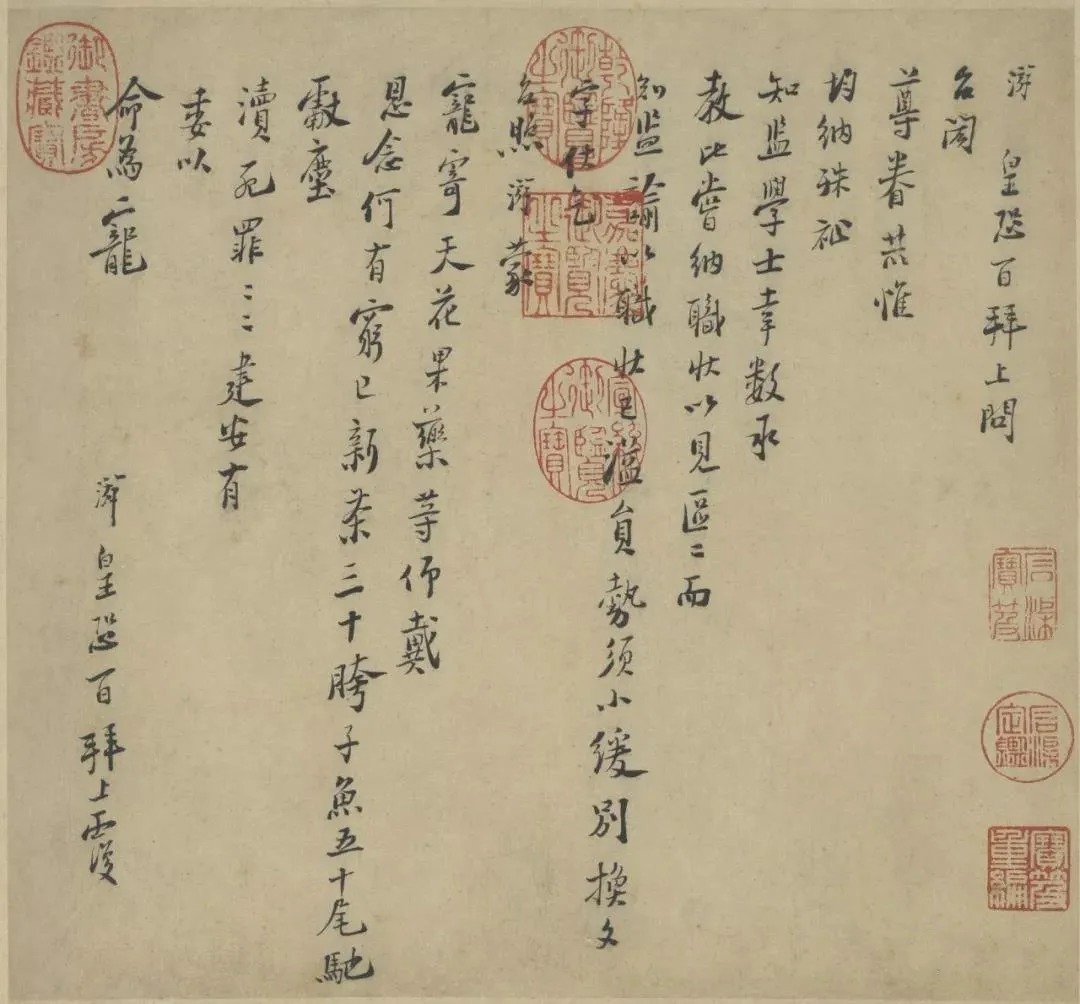 游 皇恐百拜上問
台閤
尊眷共惟
均納殊祉
知監學士幸數承
教比嘗納職狀以見區〻而
知監諭以職狀已溢員勢須小緩別換文
字仕乞
台照游蒙
寵寄天花果藥等仰戴
恩念何有窮已新茶三十胯子魚五十尾馳
獻塵
瀆死罪〻〻建安有
委以
命為寵
游皇恐百拜上覆
御書房鑑藏寶
乾隆御覽之寶
嘉慶御覽之寶
宣統御覽之寶
石渠寶笈
石渠定鑑
寶笈重編